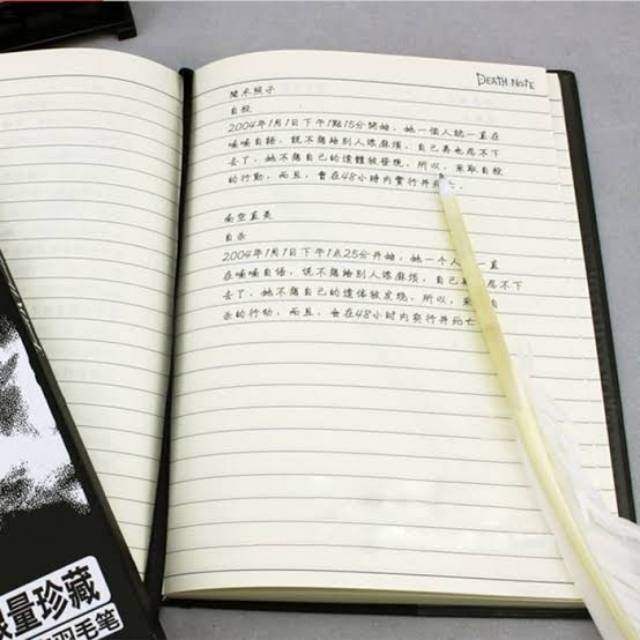 DEATH NOTE
自殺
2004年1月1日下午1點15分開始，她一個人總一直在
喃喃自語，說不想給別人添麻煩，自己再也忍不下
去了，她不想自己的遺體被發現，所以，采取自殺
的行動，而且，會在48小時内實行并死亡。
南空直美
自杀
2004年1月1日下午1点25分开始，她一个人 一直
在喃喃自语，说不想给别人添麻烦，自己再 忍不下
去了，她不想自己的遗体被发现，所以，采 自
杀的行动，而且，会在48小时内实行并死亡
限量珍藏
羽毛笔